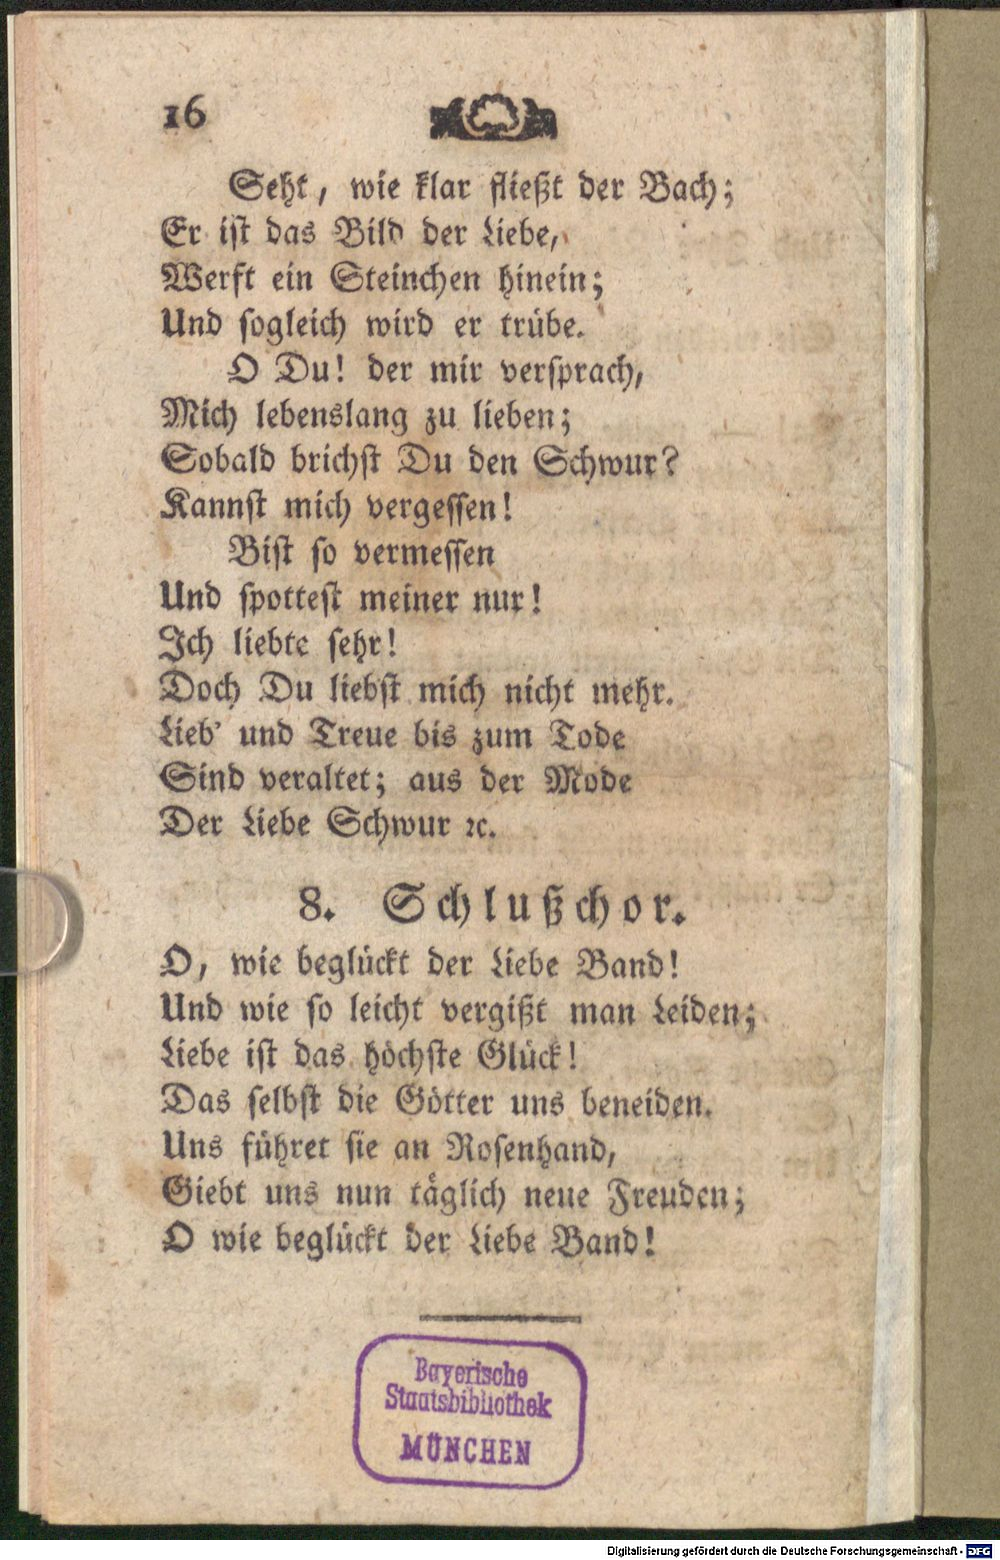 16
Seht, wie klar fließt der Bach;
Er ist das Bild der Liebe,
Werft ein Steinchen hinein;
Und sogleich wird er trübe.
O Du! der mir versprach,
Mich lebenslang zu lieben;
Sobald brichst Du den Schwur?
Kannst mich vergessen!
Bist so vermessen
Und spottest meiner nur!
Ich liebte sehr!
Doch Du liebst mich nicht mehr.
Lieb' und Treue bis zum Tode
Sind veraltet; aus der Mode
Der Liebe Schwur ꝛc.
8. Schlußchor.
O, wie beglückt der Liebe Band!
Und wie so leicht vergißt man Leiden;
Liebe ist das höchste Glück!
Das selbst die Götter uns beneiden.
Uns führet sie an Rosenhand,
Giebt uns nun täglich neue Freuden;
O wie beglückt der Liebe Band!
Bayerische
Staatsbibliothek
MÜNCHEN
Digitalisierung gefördert durch die Deutsche Forschungsgemeinschaft - DFG